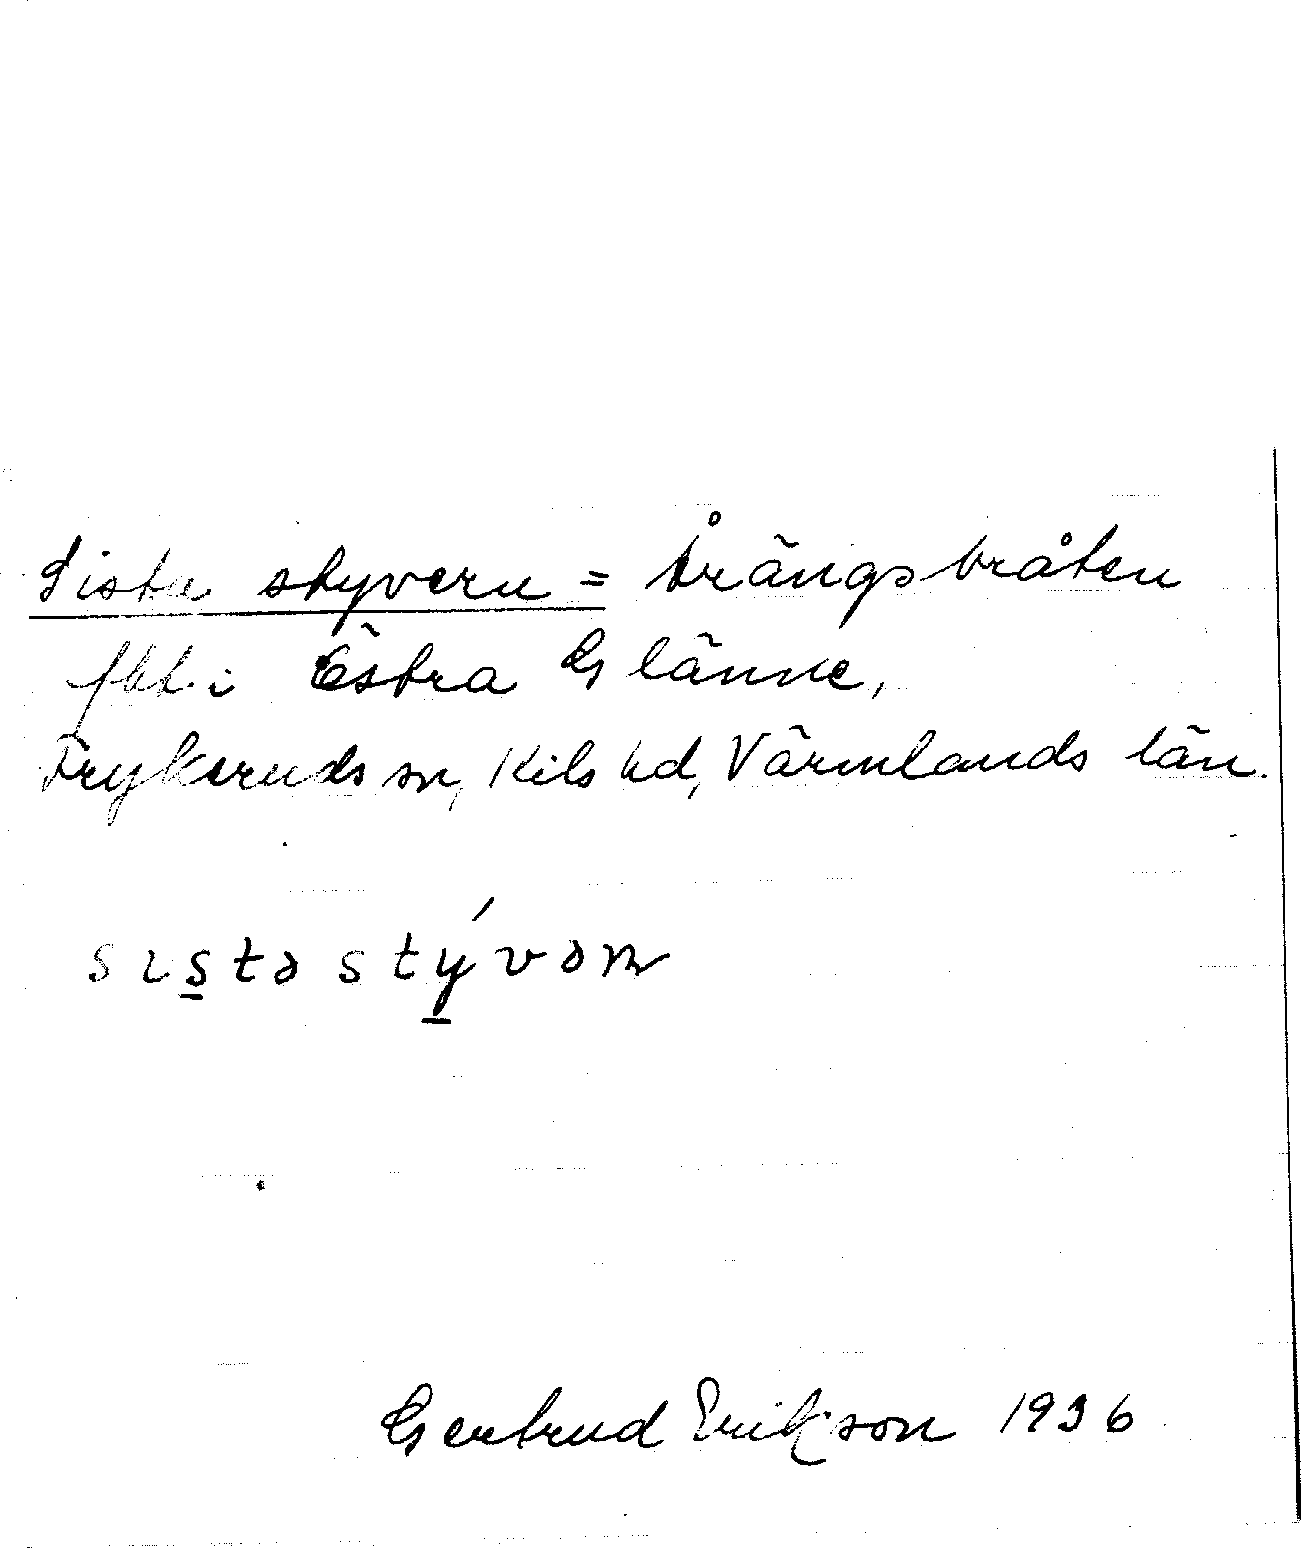 Sista styvern = Årängsbråten
fbt. i Östra Glänne,
Frykeruds sn, Kils hd, Värmlands län.
sıstə stývəṇ
Gertrud Erikson 1936